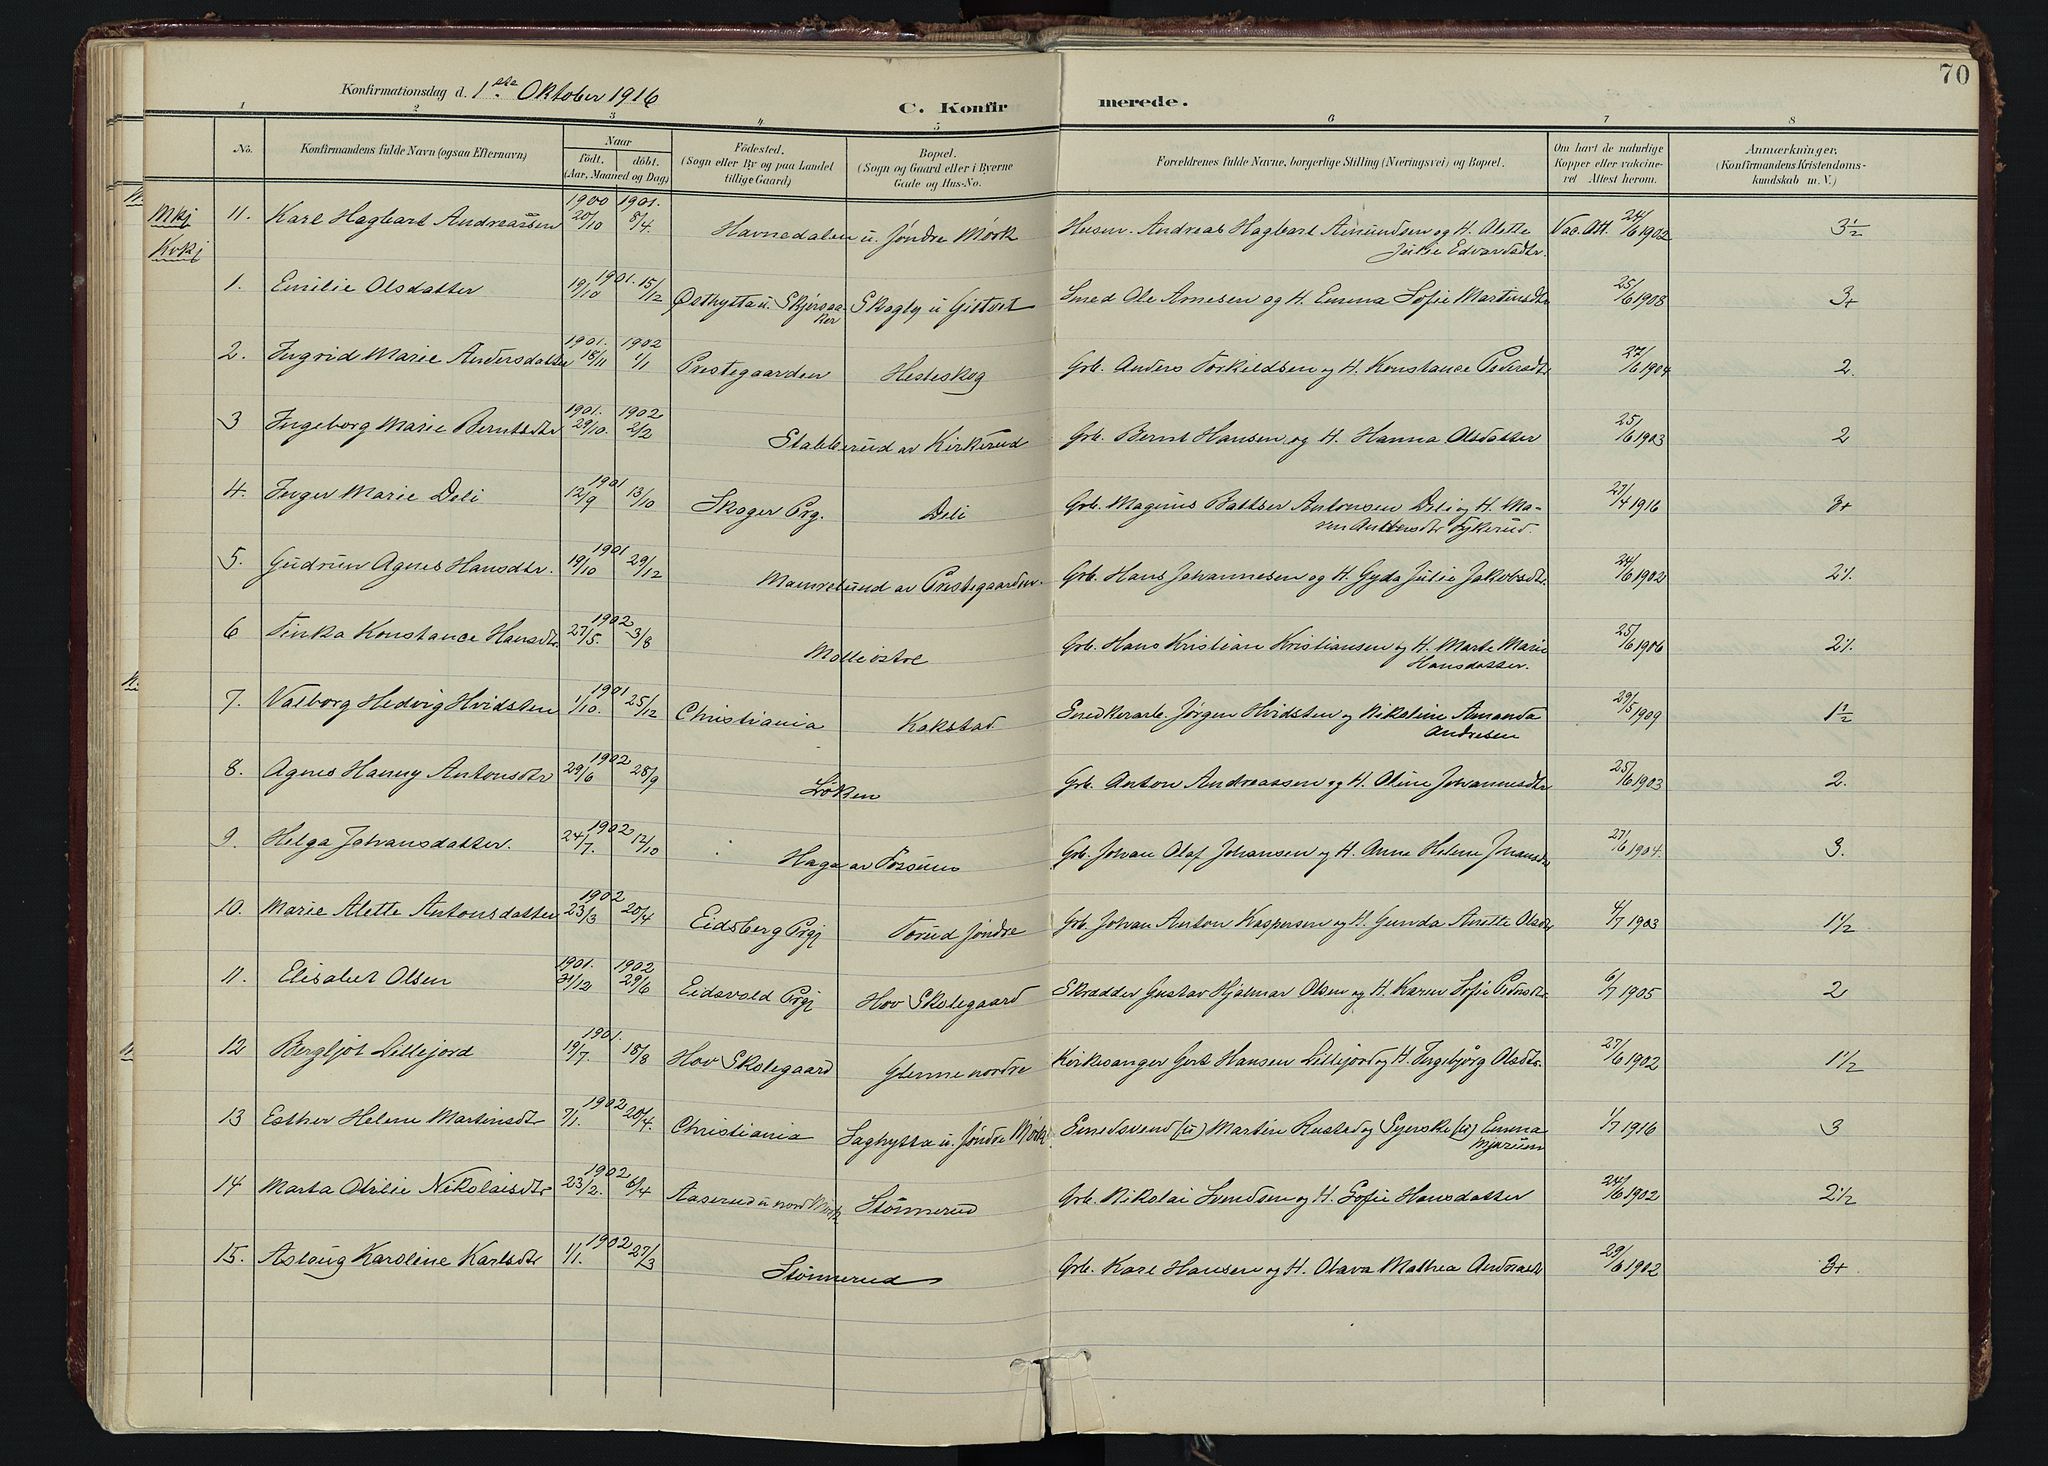 70
Konfirmationsdag d. 1ste Oktober 1916
C. Konfirmerede.
1 2 3 4 5 6 7 8
No. Konfirmandens fulde Navn (ogsaa Efternavn) Naar født. døbt. (Aar, Maaned og Dag) Fødested. (Sogn eller By og paa Landet tillige Gaard) Bopæl. (Sogn og Gaard eller i Byerne Gade og Hus-No. Forældrenes fulde Navne, borgerlige Stilling (Næringsvei) og Bopæl. Om havt de naturlige Kopper eller vakcineret Attest herom. Anmærkninger. (Konfirmandens Kristendomskundskab m. V.)
Mkj 11. Karl Hagbart Andreassen 1900 20/10 1901. 8/4. Havnedalen u. Jøndre Mørk Husm. Andreas Hagbart Amundsen og H. Alette Julie Edvardsdtr. Vac. Att. 24/6 1902 3½
Kvkj
1. Emilie Olsdatter 1901. 19/10 15/12 Østhytta u. Skjersaaker Skogly u Gittvet Smed Ole Arnesen og H. Emma Sofie Martinsdtr 25/6 1908 3+
2. Ingrid Marie Andersdatter 1901. 18/11 1902 1/1 Prestegaarden Hesteskog Grb. Anders Torkildsen og H. Konstance Pedersdtr 27/6 1904 2.
3 Ingeborg Marie Berntsdtr 1901. 29/10. 1902 2/2 Stabberud av Kirkerud Grb. Bernt Hansen og H. Hanna Olsdatter 25/6 1903 2
4. Inger Marie Deli 1901 12/9 13/10 Skoger Prg. Deli Grb. Magnus Baltser Antonsen Deli og H. Maren Antonsdtr Fykerud. 27/4 1916 3+
5. Gudrun Agnes Hansdtr. 1901 19/10 29/12 Mamrelund av Prestegaarden. Grb. Hans Johannesen og H. Gyda Julie Jakobsdtr. 24/6 1902 2½
6 Tinka Konstance Hansdtr. 1902 27/5. 3/8 Molle østre Grb. Hans Kristian Kristiansen og H. Marte Marie Hansdatter. 25/6 1906 2½
7. Valborg Hedvig Hvidsten 1901 1/10. 25/12 Christiania Kakstad. Snedkerarb. Jørgen Hvidsten og Nikoline Amanda Andresen 29/5 1909 1½
8. Agnes Hanny Antonsdtr 1902 29/6 28/9 Løken Grb. Anton Andreassen og H. Oline Johannesdtr 25/6 1903 2.
9. Helga Johansdatter. 1902 24/7. 12/10 Haga av Fossum Grb. Johan Olaf Johansen og H. Anne Helene Jhansdtr 27/6 1904. 3.
10. Marie Alette Antonsdatter 1902 23/3 20/4 Eidsberg Prgj Torud Jøndre Grb. Johan Anton Kaspersen og H. Gunda Anette Olsdtr 4/7 1903 1½
11. Elisabet Olsen 1901. 31/12 1902 29/6 Eidsvold Prgj Hov Skolegaard Skrædder Gustav Hjalmar Olsen og H. Karen Sofie Pedersdtr 6/7 1905 2
12 Bergljot Lillejord 1901. 19/7. 18/8 Hov Skolegaard Glenne nordre Kirkesanger Gert Hansen Lillejord og H. Ingebjørg Olsdtr. 27/6 1902 1½
13 Esther Helene Martinsdtr 1902 7/1. 20/4. Christiania Saghytta u. Jøndre Mørk Smedsvend (u) Martin Rustad og Syerske (u) Emma Mjærum 1/7 1916 3
14 Marta Otilie Nikolaisdtr 1902 23/2. 6/4 Aaserud u nord Mørk Stønnerud Grb. Nikolai Svendsen og H. Sofie Hansdatter 24/6 1902 2½
15. Aslaug Karoline Karlsdtr 1902 1/1. 27/3 Stønnerud Grb. Karl Hansen og H. Olava Mathea Andreasdtr 29/6 1902 3+